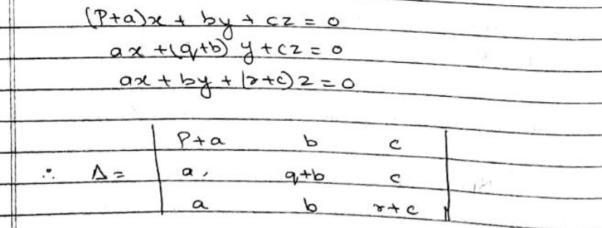 (P+a)x + by + cz = 0
ax +(q+b) y + cz = 0
ax + by + (r+c) z = 0
P+a b c
∴ Δ = a, q+b c
a b r+c